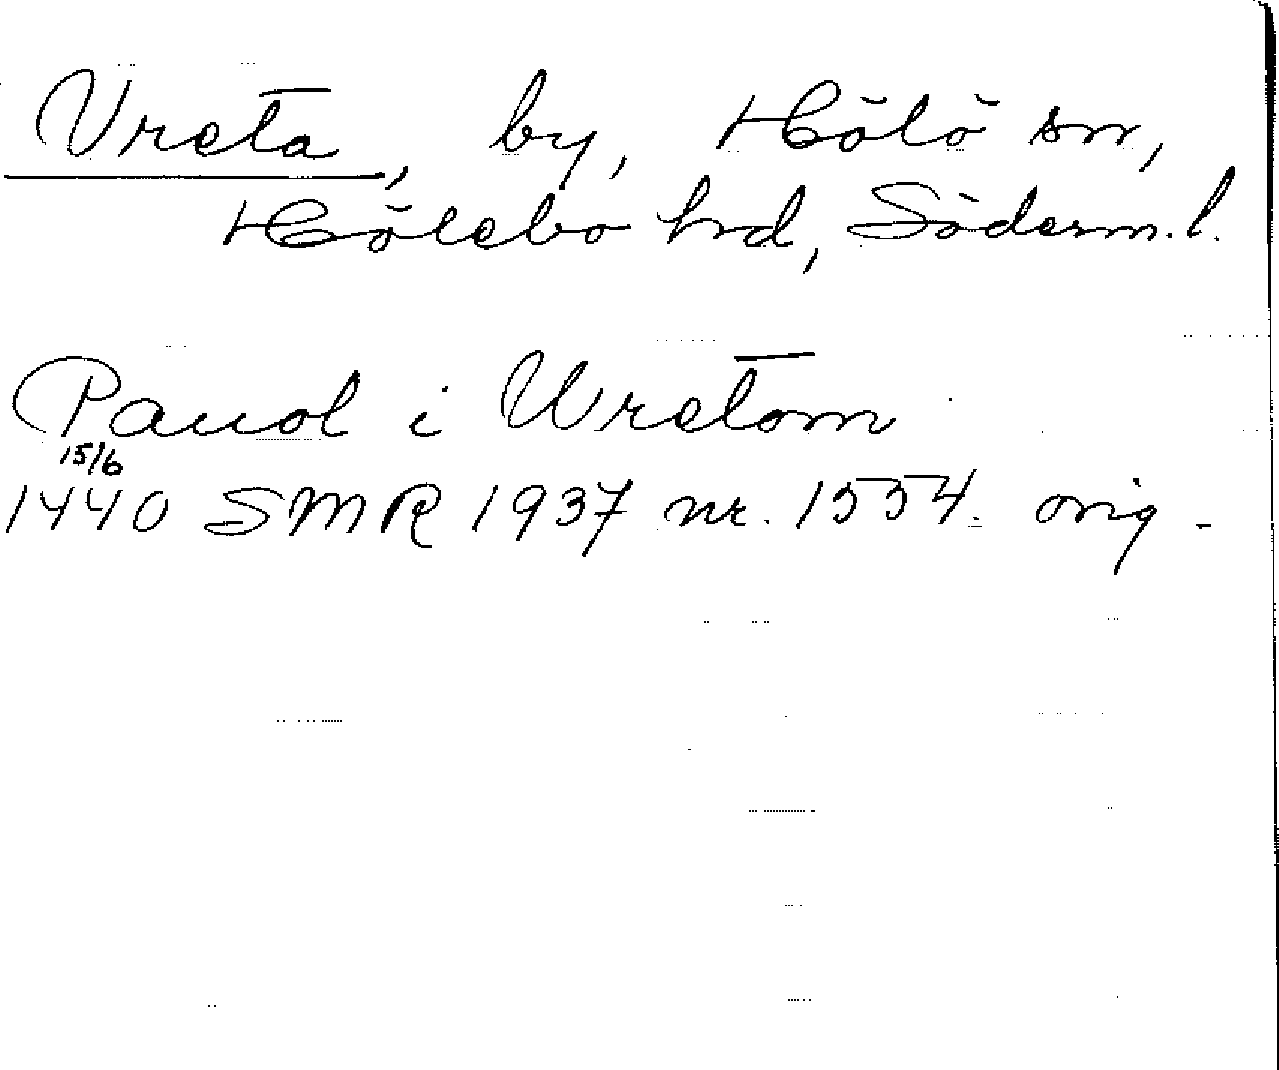 Vreta, by, Hölö sn,
Hölebo hrd, Söderm. l.
Pauol i Wretom
15/6
1440 SMR 1937 nr. 1554. orig.